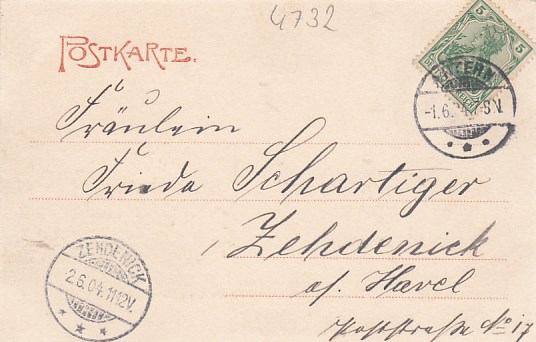 4732
POSTKARTE.
5 5
-1.6. 8V.
Fräulein
Frieda Schartiger
Zehdenick
a/. Havel
Poststraße No 17
ZEHDENICK
2.6.04.1112V.